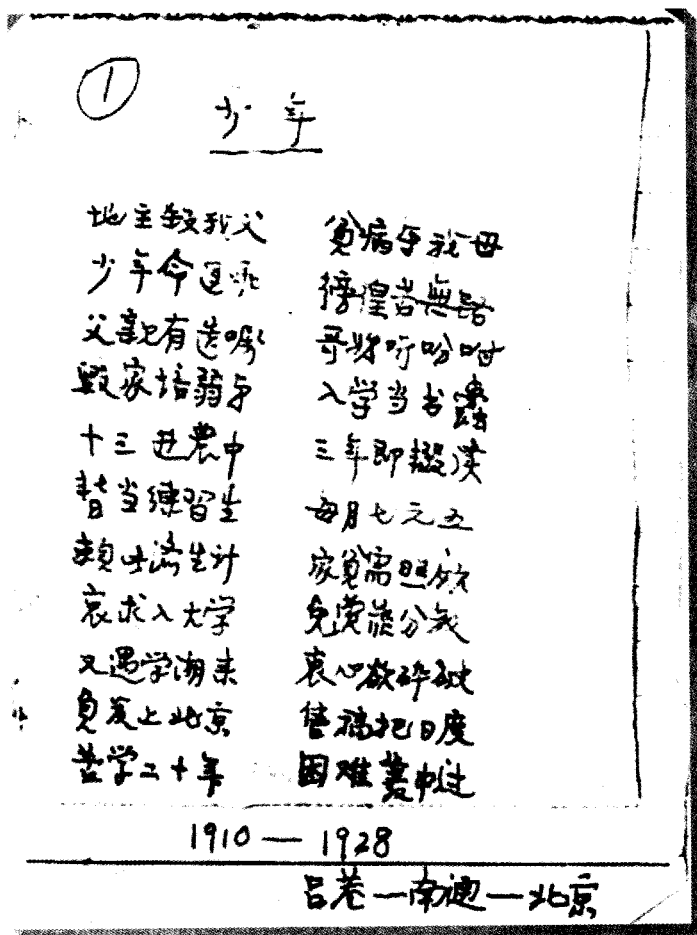 ①
少年
地主殺我父 貧病夺我母
少年命運乖 徬徨苦無路
父親有遗嘱 哥嫂听吩咐
毀家培弱弟 入学当书蠹
十三进農中 三年即掇读
暂当練習生 每月七元五
赖此济生计 家貧需照顾
哀求入大学 免费
又遇学潮来 衷心欲碎
負笈上北京 售稿把日度
苦学二十年 困难中过
1910—1928
吕巷—南通—北京